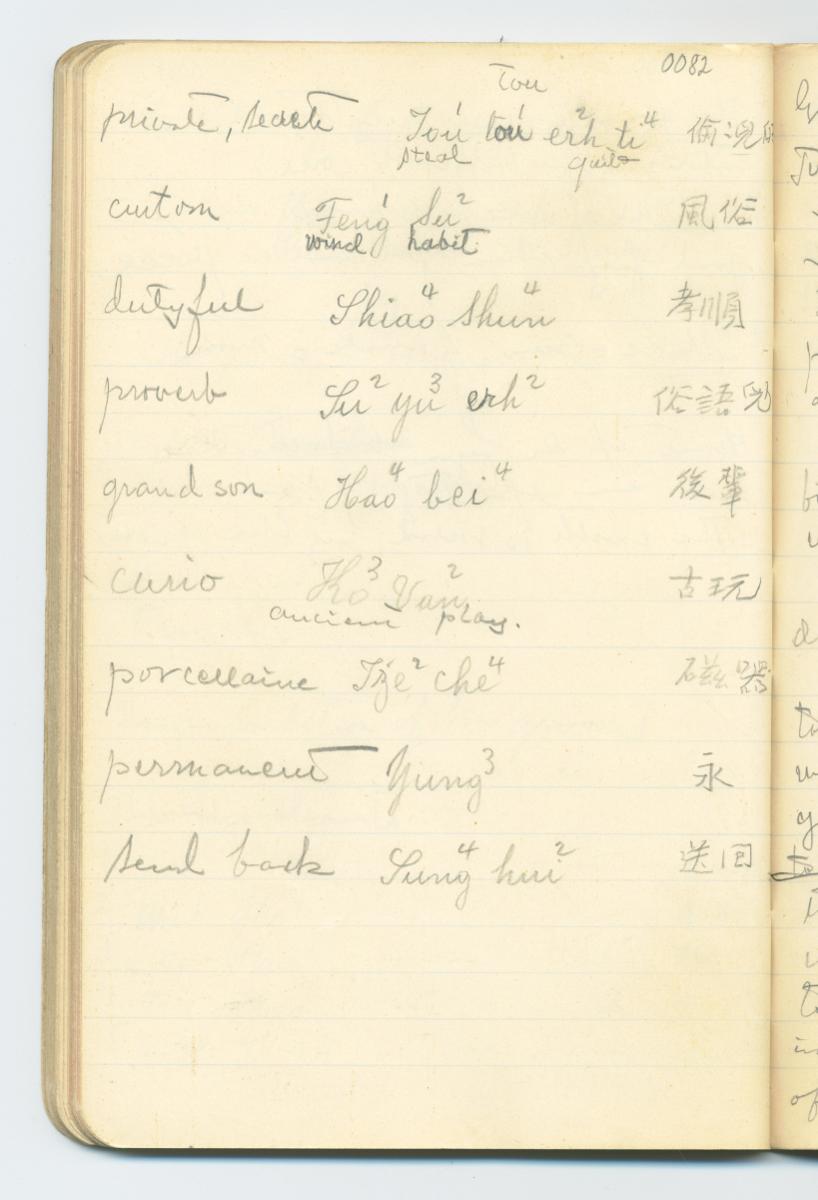 0082
Tou
private, secret Tou¹ tou¹ erh² ti⁴ 偷
steal
custom Feng¹ Su² 風俗
wind habit
dutyful Shiao⁴ Shun⁴ 孝順
proverb Su² yu³ erh² 俗語兒
grand son Hao⁴ bei⁴ 後輩
curio Ko³ Van² 古玩
ancient play.
porcellaine Tze² che⁴ 磁器
permanent Yung³ 永
send back Sung⁴ hui² 送回